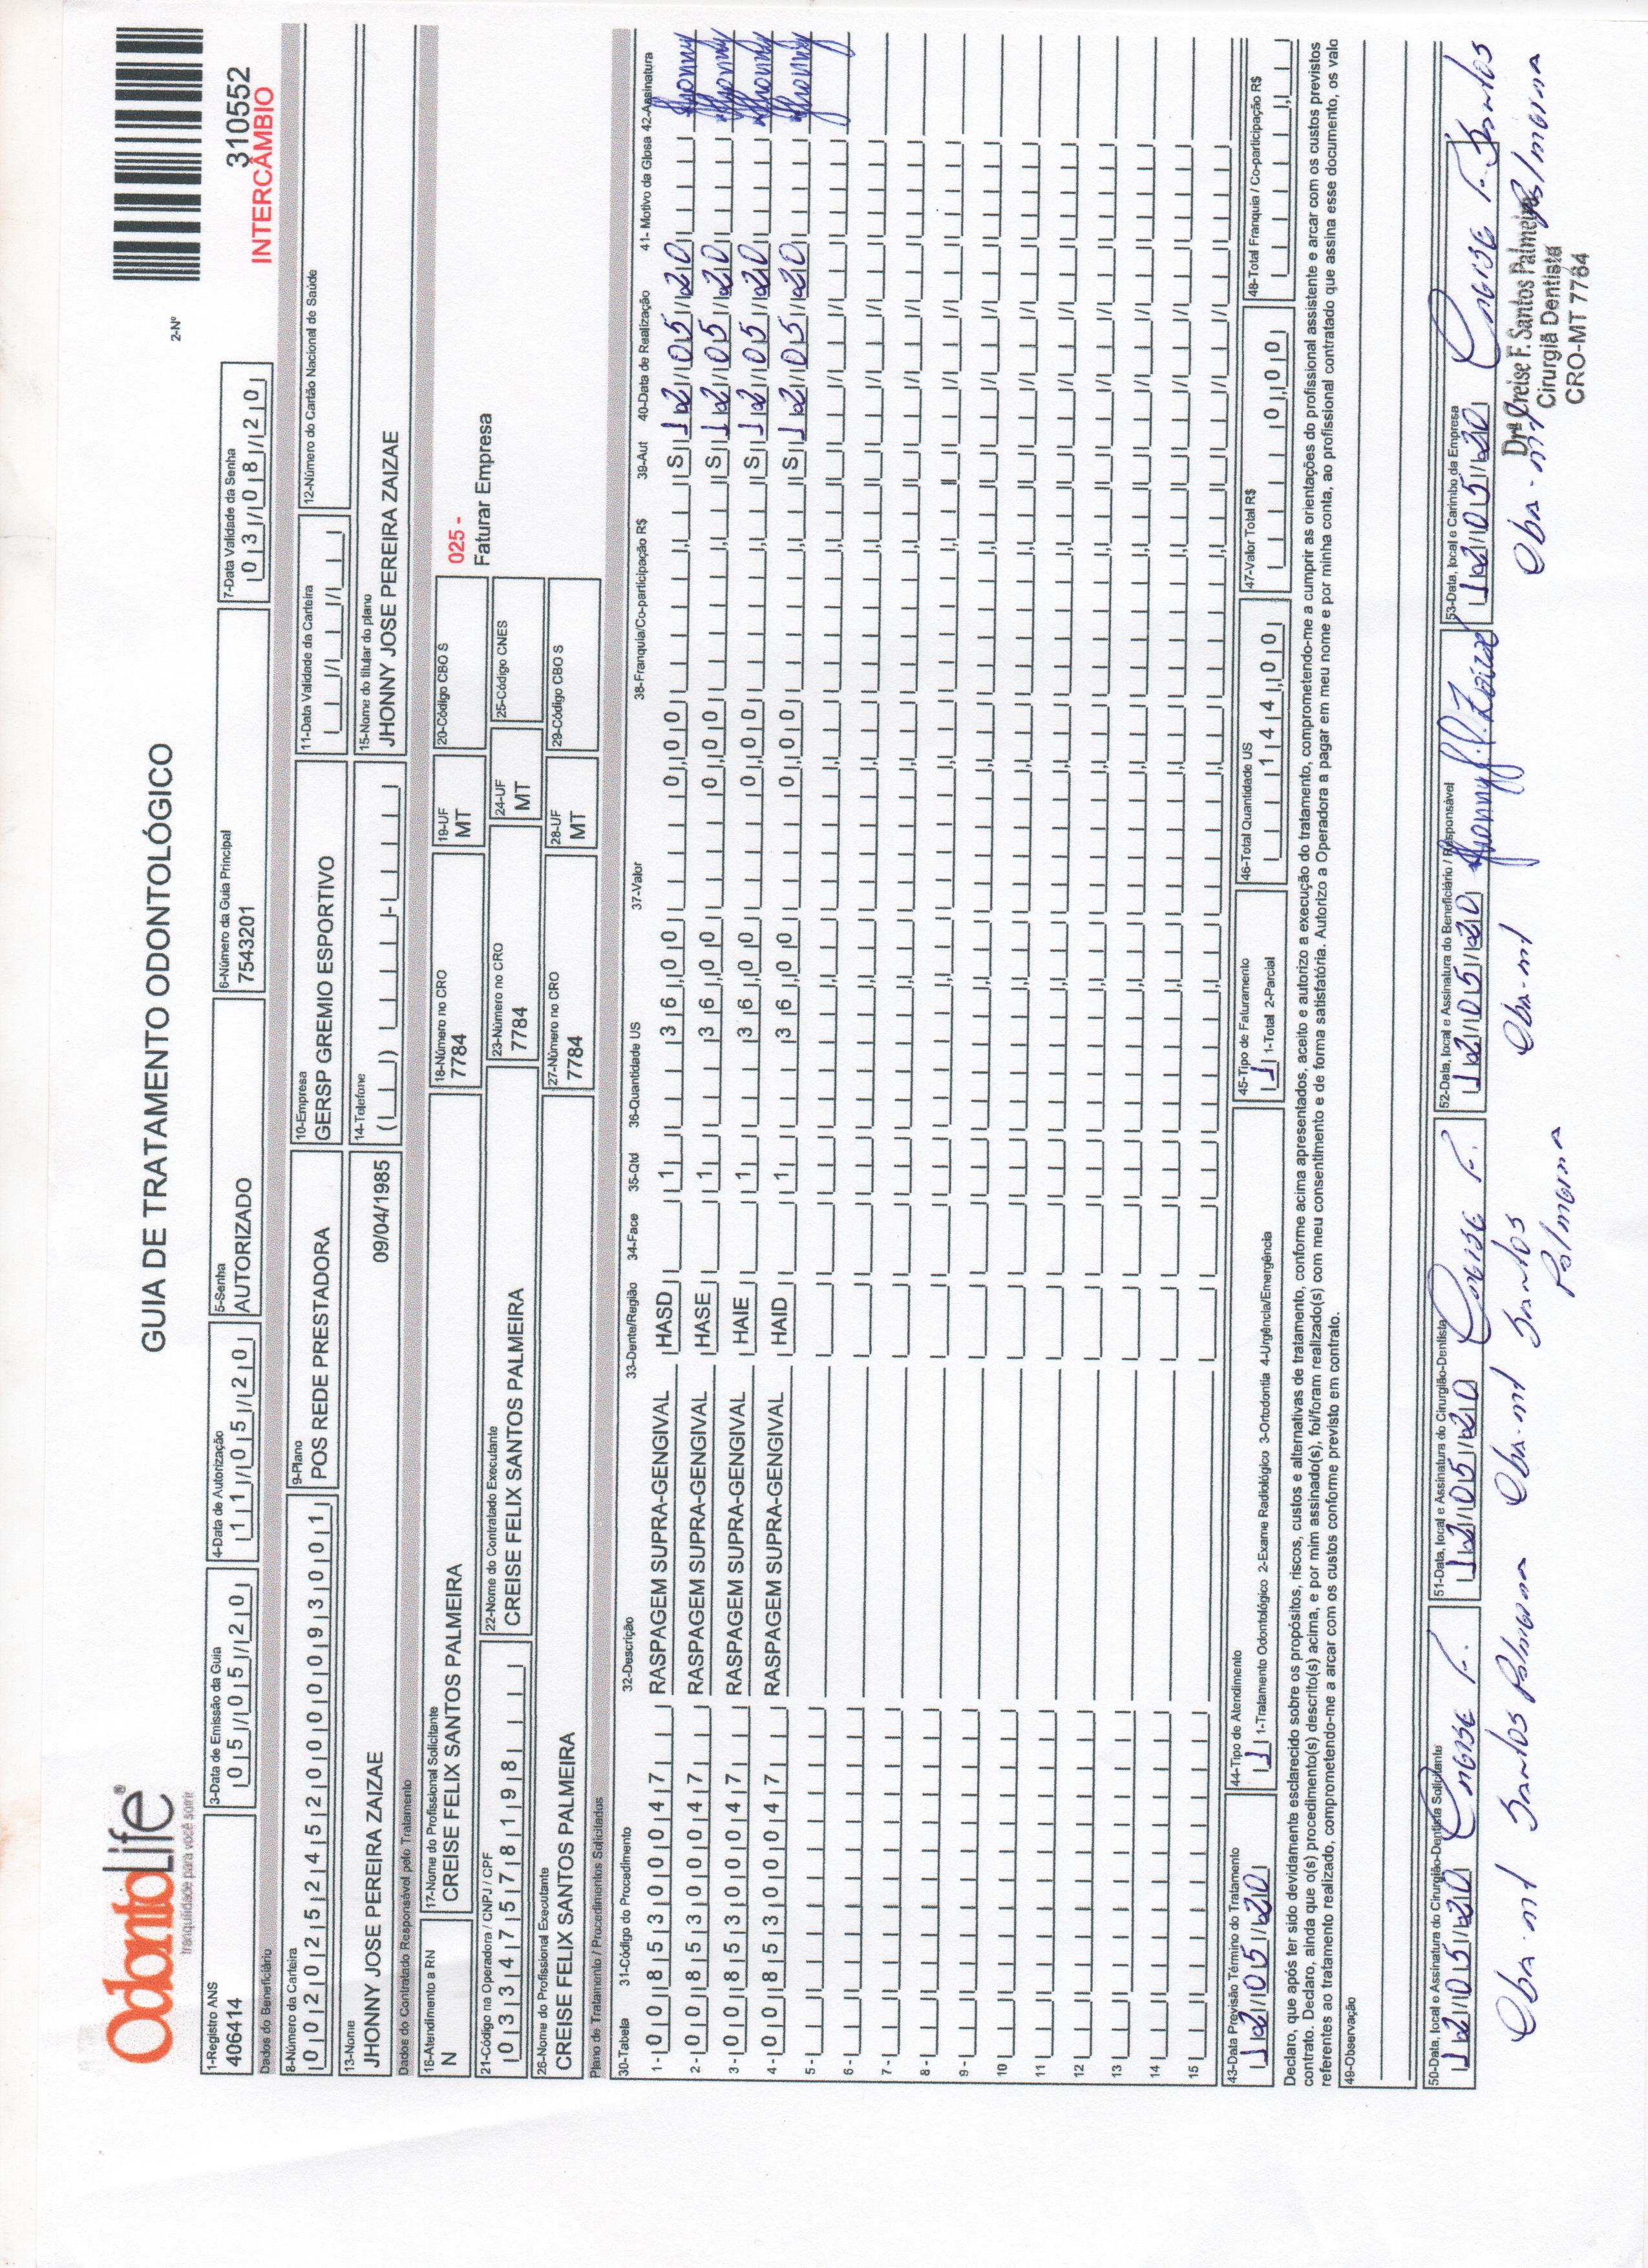 OdontoLife®
tranquilidade para você sorrir
GUIA DE TRATAMENTO ODONTOLÓGICO
2-Nº
310552
INTERCÂMBIO
1-Registro ANS
406414
3-Data de Emissão da Guia
05/05/20
4-Data de Autorização
11/05/20
5-Senha
AUTORIZADO
6-Número da Guia Principal
7543201
7-Data Validade da Senha
03/08/20
Dados do Beneficiário
8-Número da Carteira
00202524520000093001
9-Plano
POS REDE PRESTADORA
10-Empresa
GERSP GREMIO ESPORTIVO
11-Data Validade da Carteira
12-Número do Cartão Nacional de Saúde
13-Nome
JHONNY JOSE PEREIRA ZAIZAE 09/04/1985
14-Telefone
15-Nome do titular do plano
JHONNY JOSE PEREIRA ZAIZAE
Dados do Contratado Responsável pelo Tratamento
16-Atendimento a RN
N
17-Nome do Profissional Solicitante
CREISE FELIX SANTOS PALMEIRA
18-Número no CRO
7784
19-UF
MT
20-Código CBO S
025 -
Faturar Empresa
21-Código na Operadora / CNPJ / CPF
03347578198
22-Nome do Contratado Executante
CREISE FELIX SANTOS PALMEIRA
23-Número no CRO
7784
24-UF
MT
25-Código CNES
26-Nome do Profissional Executante
CREISE FELIX SANTOS PALMEIRA
27-Número no CRO
7784
28-UF
MT
29-Código CBO S
Plano de Tratamento / Procedimentos Solicitados
30-Tabela 31-Código do Procedimento 32-Descrição 33-Dente/Região 34-Face 35-Qtd 36-Quantidade US 37-Valor 38-Franquia/Co-participação R$ 39-Aut 40-Data de Realização 41- Motivo da Glosa 42-Assinatura
1 - 00 85300047 RASPAGEM SUPRA-GENGIVAL HASD 1 36,00 0,00 S 12/05/20 Jhonny
2 - 00 85300047 RASPAGEM SUPRA-GENGIVAL HASE 1 36,00 0,00 S 12/05/20 Jhonny
3 - 00 85300047 RASPAGEM SUPRA-GENGIVAL HAIE 1 36,00 0,00 S 12/05/20 Jhonny
4 - 00 85300047 RASPAGEM SUPRA-GENGIVAL HAID 1 36,00 0,00 S 12/05/20 Jhonny
5 -
6 -
7 -
8 -
9 -
10
11
12
13
14
15
43-Data Previsão Término do Tratamento
12/05/20
44-Tipo de Atendimento
1 1-Tratamento Odontológico 2-Exame Radiológico 3-Ortodontia 4-Urgência/Emergência
45-Tipo de Faturamento
1 1-Total 2-Parcial
46-Total Quantidade US
144,00
47-Valor Total R$
0,00
48-Total Franquia / Co-participação R$
Declaro, que após ter sido devidamente esclarecido sobre os propósitos, riscos, custos e alternativas de tratamento, conforme acima apresentados, aceito e autorizo a execução do tratamento, comprometendo-me a cumprir as orientações do profissional assistente e arcar com os custos previstos
contrato. Declaro, ainda que o(s) procedimento(s) descrito(s) acima, e por mim assinado(s), foi/foram realizado(s) com meu consentimento e de forma satisfatória. Autorizo a Operadora a pagar em meu nome e por minha conta, ao profissional contratado que assina esse documento, os valo
referentes ao tratamento realizado, comprometendo-me a arcar com os custos conforme previsto em contrato.
49-Observação
50-Data, local e Assinatura do Cirurgião-Dentista Solicitante
12/05/20 Creise F.
51-Data, local e Assinatura do Cirurgião-Dentista
12/05/20 Creise F.
52-Data, local e Assinatura do Beneficiário / Responsável
12/05/20 Jhonny J. P. Zaizae
53-Data, local e Carimbo da Empresa
12/05/20 Creise F. Santos
Cba-mt Santos Palmeira
Cba-mt Santos
Palmeira
Cba-mt
Cba-mt Palmeira
Drª Creise F. Santos Palmeira
Cirurgiã Dentista
CRO-MT 7784
Cba-mt Palmeira